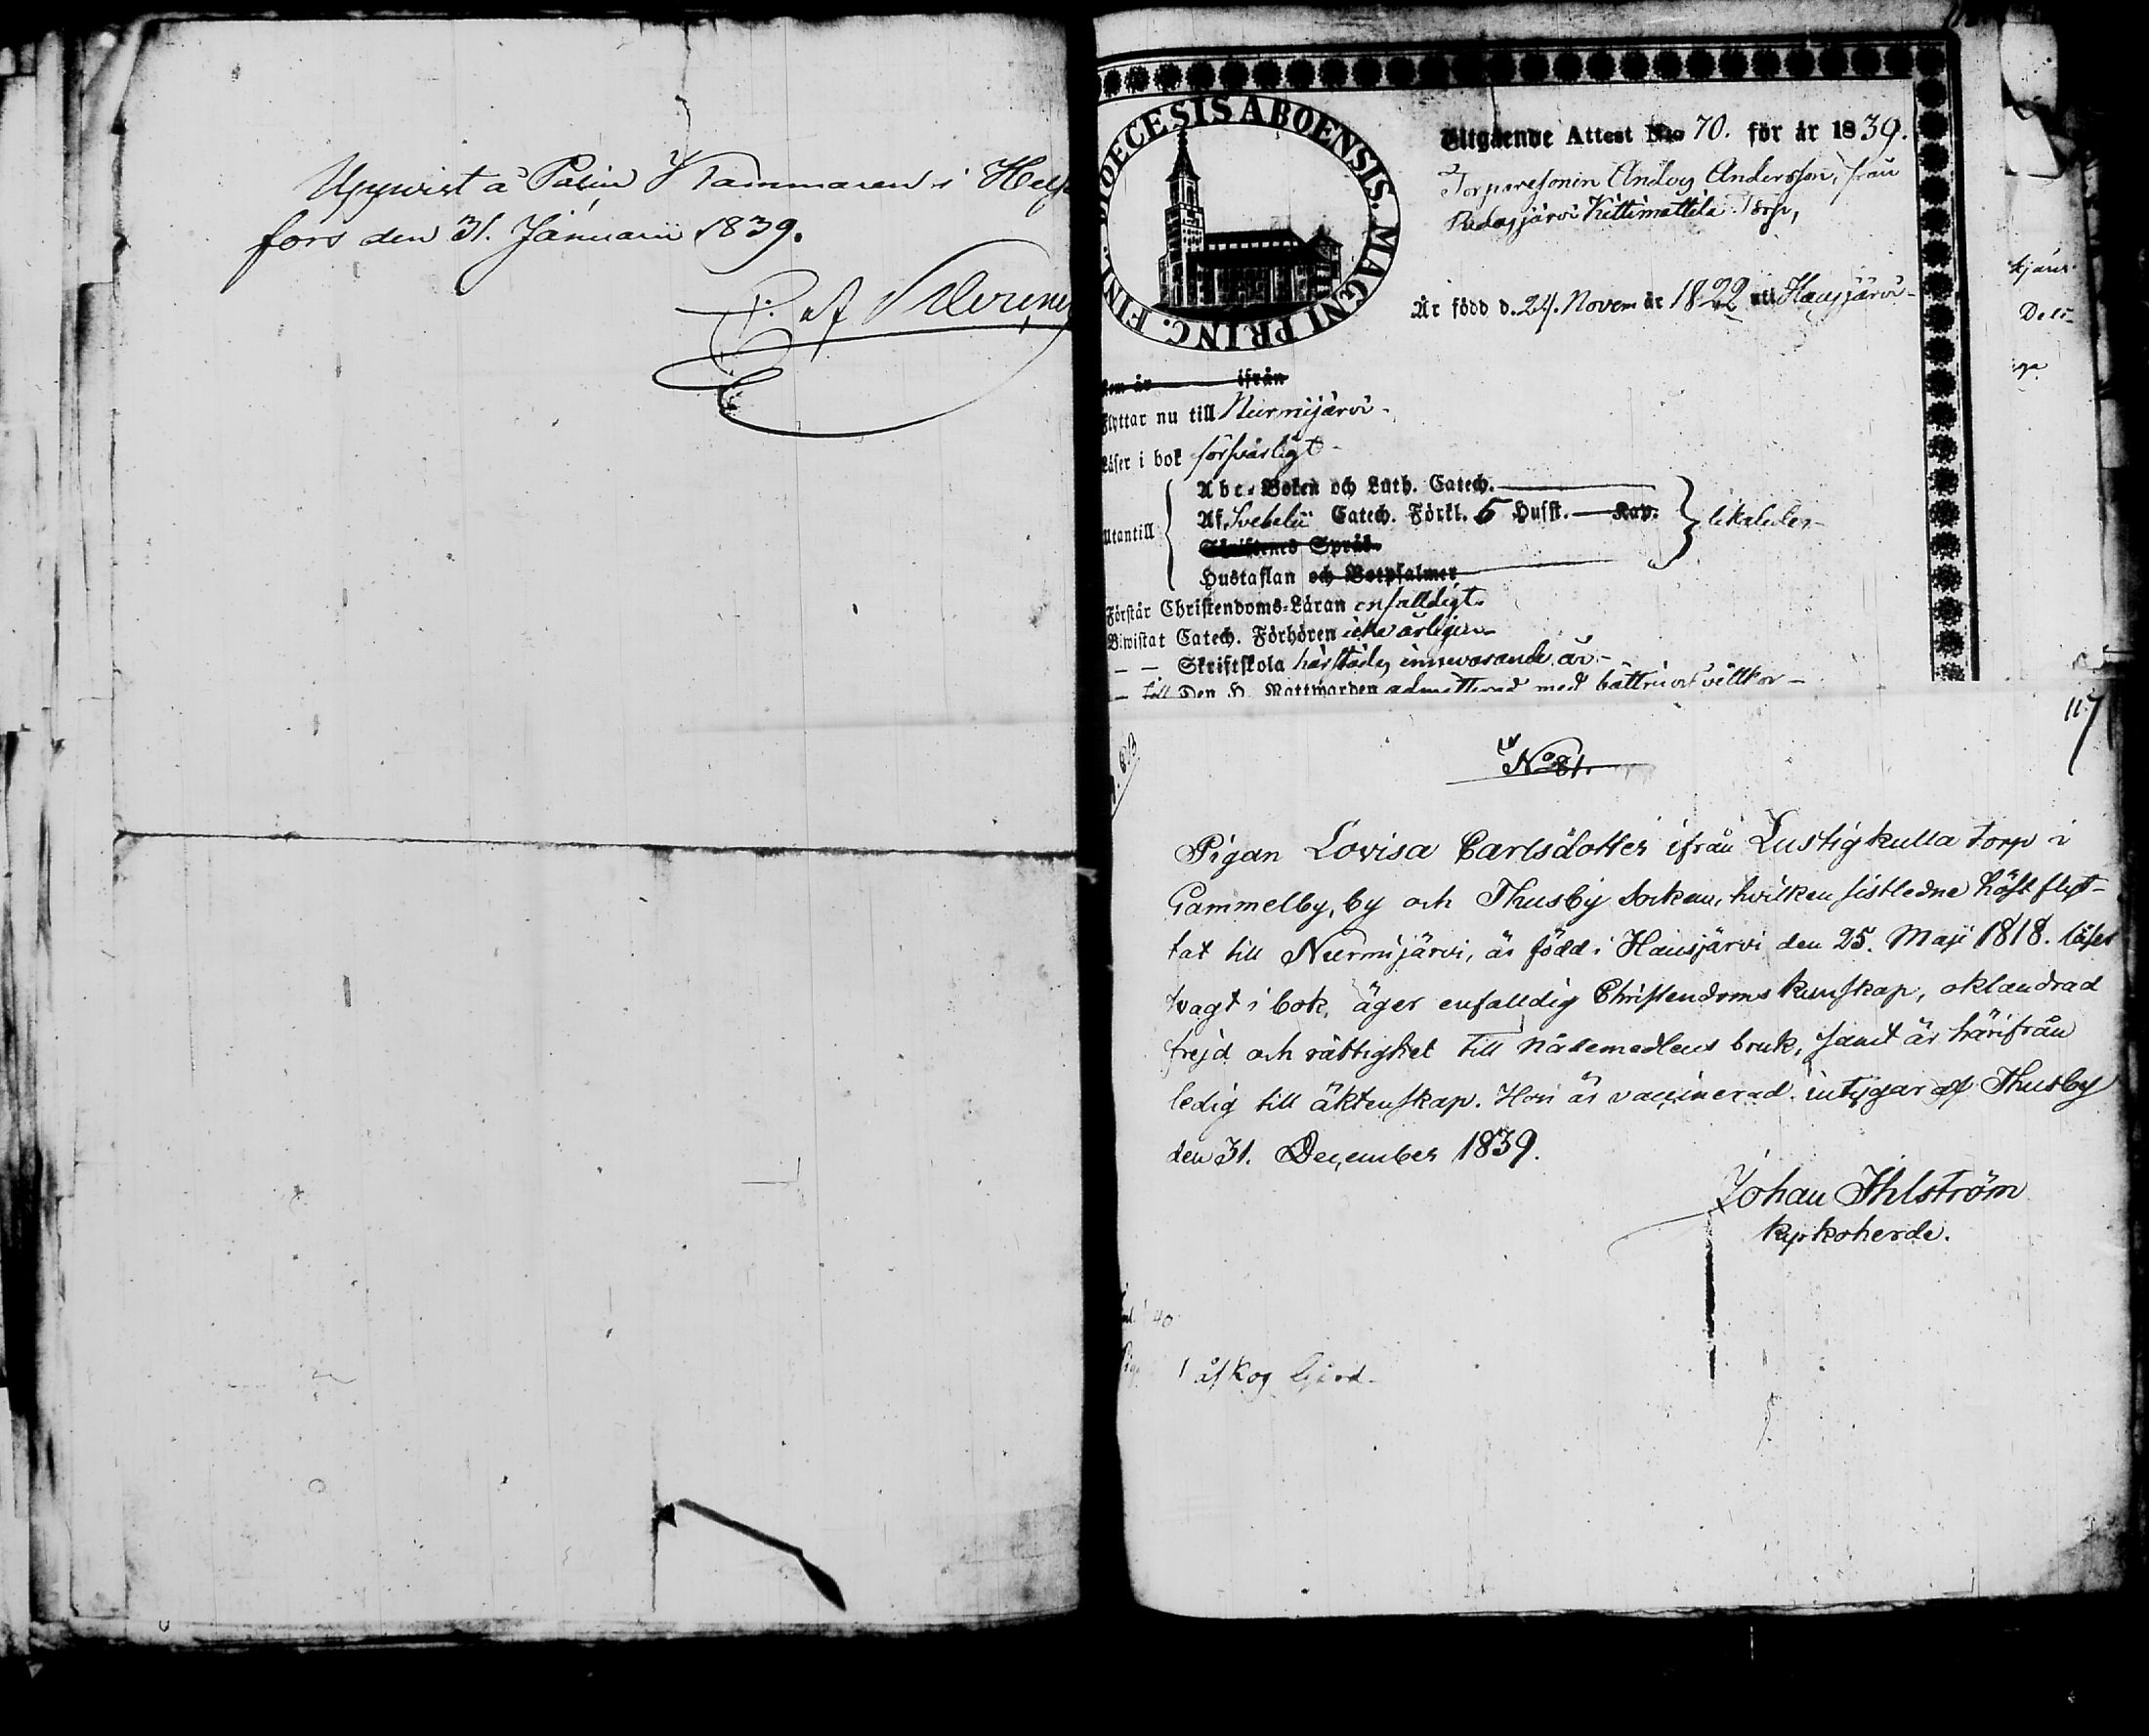 Uppvist å Polis Kammaren i Helsing
fors den 31. Januari 1839.
af
DIOECESIS ABOENSIS. MAGNI PRINC. FINL.
Utgående Attest N:o 70. för år 1839.
Torparesonen Anders Andersson, från
Kittimattila Torp,
Är född d. 24. Novem år 1822 uti Hausjärvi
år ifrån
Flyttar nu till Nurmijärvi
Läser i bok försvarligt
Abc-Boken och Luth. Catech.
Utantill Af Svebelii Catech. Förkl. 5 Hufst. Kap. likaledes
Skriftenes Språk.
Hustaflan och Botpsalmer
Förstår Christendoms-Läran enfaldigt.
Biwistat Catech. Förhören icke årligen
— — Skriftskola härstädes innevarande år
— till Den H. Nattwarden admitterad med villkor
117
No 81.
Pigan Lovisa Carlsdotter ifrån Lustigkulla torp i
Gammelby, by och Thusby Socken, hvilken sistledne höst flyt-
tat till Nurmijärvi, är född i Hausjärvi den 25. Maji 1818. läser
svagt i bok, äger enfalldig Christendoms kunskap, oklandrad
frejd och rättighet till Nådemedlens bruk, samt är härifrån
ledig till äktenskap. Hon är vaccinerad. intygar af Thusby
den 31. December 1839.
Johan Ihlström
kyrkoherde.
40